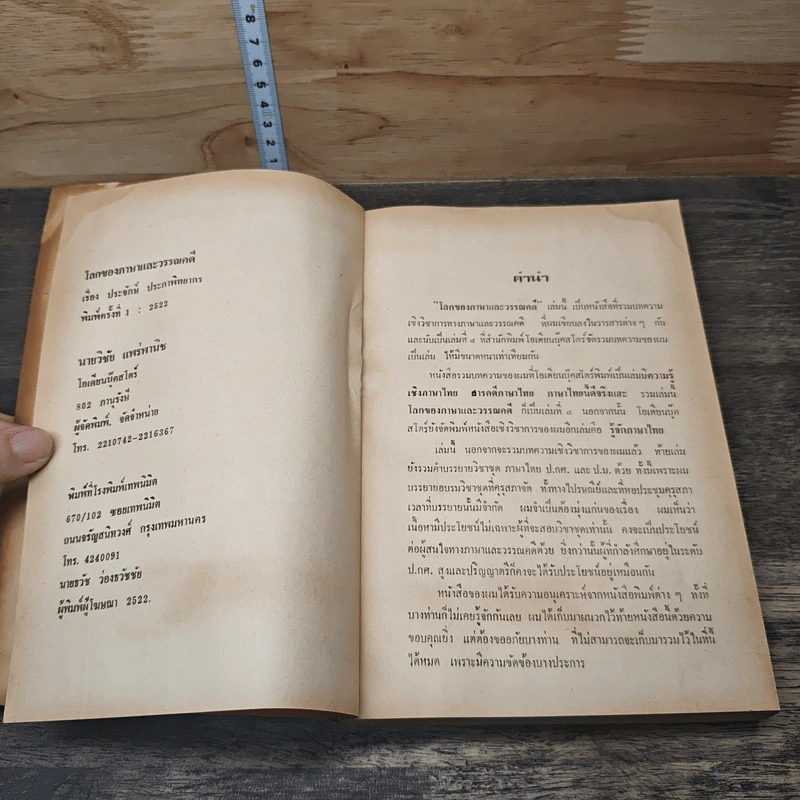 8 7 6 5 4 3 2 1
โลกของภาษาและวรรณคดี
เรื่อง ประจักษ์ ประภาพิทยากร
พิมพ์ครั้งที่ 1 : 2522
นายวิชัย แพร่พานิช
โอเดียนบุ๊คสโตร์
802 ภานุรังษี
ผู้จัดพิมพ์, จัดจำหน่าย
โทร. 2210742-2216367
พิมพ์ที่โรงพิมพ์เทพนิมิต
670/102 ซอยเทพนิมิต
ถนนจรัญสนิทวงศ์ กรุงเทพมหานคร
โทร. 4240091
นายธวัช ว่องธวัชชัย
ผู้พิมพ์ผู้โฆษณา 2522.
คำนำ
“โลกของภาษาและวรรณคดี” เล่มนี้ เป็นหนังสือที่รวมบทความ
เชิงวิชาการทางภาษาและวรรณคดี ที่ผมเขียนลงในวารสารต่าง ๆ กัน
และนับเป็นเล่มที่ ๔ ที่สำนักพิมพ์โอเดียนบุ๊คสโตร์จัดรวมบทความของผม
เป็นเล่ม ให้มีขนาดหนาเท่าเทียมกัน
หนังสือรวมบทความของผมที่โอเดียนบุ๊คสโตร์พิมพ์เป็นเล่มมีความรู้
เชิงภาษาไทย สารคดีภาษาไทย ภาษาไทยนี้ดีจริงแฮะ รวมเล่มนี้
โลกของภาษาและวรรณคดี ก็เป็นเล่มที่ ๔ นอกจากนั้น โอเดียนบุ๊ค
สโตร์ยังจัดพิมพ์หนังสือเชิงวิชาการของผมอีกเล่มคือ รู้จักภาษาไทย
เล่มนี้ นอกจากจะรวมบทความเชิงวิชาการของผมแล้ว ท้ายเล่ม
ยังรวมคำบรรยายวิชาชุด ภาษาไทย ป.กศ. และ ป.ม. ด้วย ทั้งนี้เพราะผม
บรรยายอบรมวิชาชุดที่คุรุสภาจัด ทั้งทางไปรษณีย์และที่หอประชุมคุรุสภา
เวลาที่บรรยายนั้นมีจำกัด ผมจำเป็นต้องมุ่งแก่นของเรื่อง ผมเห็นว่า
เนื้อหามีประโยชน์ไม่เฉพาะผู้ที่จะสอบวิชาชุดเท่านั้น คงจะเป็นประโยชน์
ต่อผู้สนใจทางภาษาและวรรณคดีด้วย ยิ่งกว่านั้นผู้ที่กำลังศึกษาอยู่ในระดับ
ป.กศ. สูงและปริญญาตรีก็คงจะได้รับประโยชน์อยู่เหมือนกัน
หนังสือของผมได้รับความอนุเคราะห์จากหนังสือพิมพ์ต่าง ๆ ทั้งที่
บางท่านก็ไม่เคยรู้จักกันเลย ผมได้เก็บมาผนวกไว้ท้ายหนังสือนี้ด้วยความ
ขอบคุณยิ่ง แต่ต้องขออภัยบางท่าน ที่ไม่สามารถจะเก็บมารวมไว้ในที่นี้
ได้หมด เพราะมีความขัดข้องบางประการ